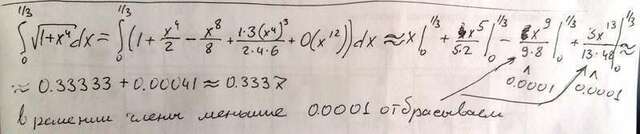 ∫₀^{1/3} √(1+x⁴) dx = ∫₀^{1/3} (1 + x⁴/2 − x⁸/8 + 1·3(x⁴)³/(2·4·6) + O(x¹²)) dx ≈ x|₀^{1/3} + x⁵/(5·2)|₀^{1/3} − x⁹/(9·8)|₀^{1/3} + 3x¹³/(13·48)|₀^{1/3} ≈
≈ 0.33333 + 0.00041 ≈ 0.3337
^ 0.0001 ^ 0.0001
в решении члены меньшие 0.0001 отбрасываем